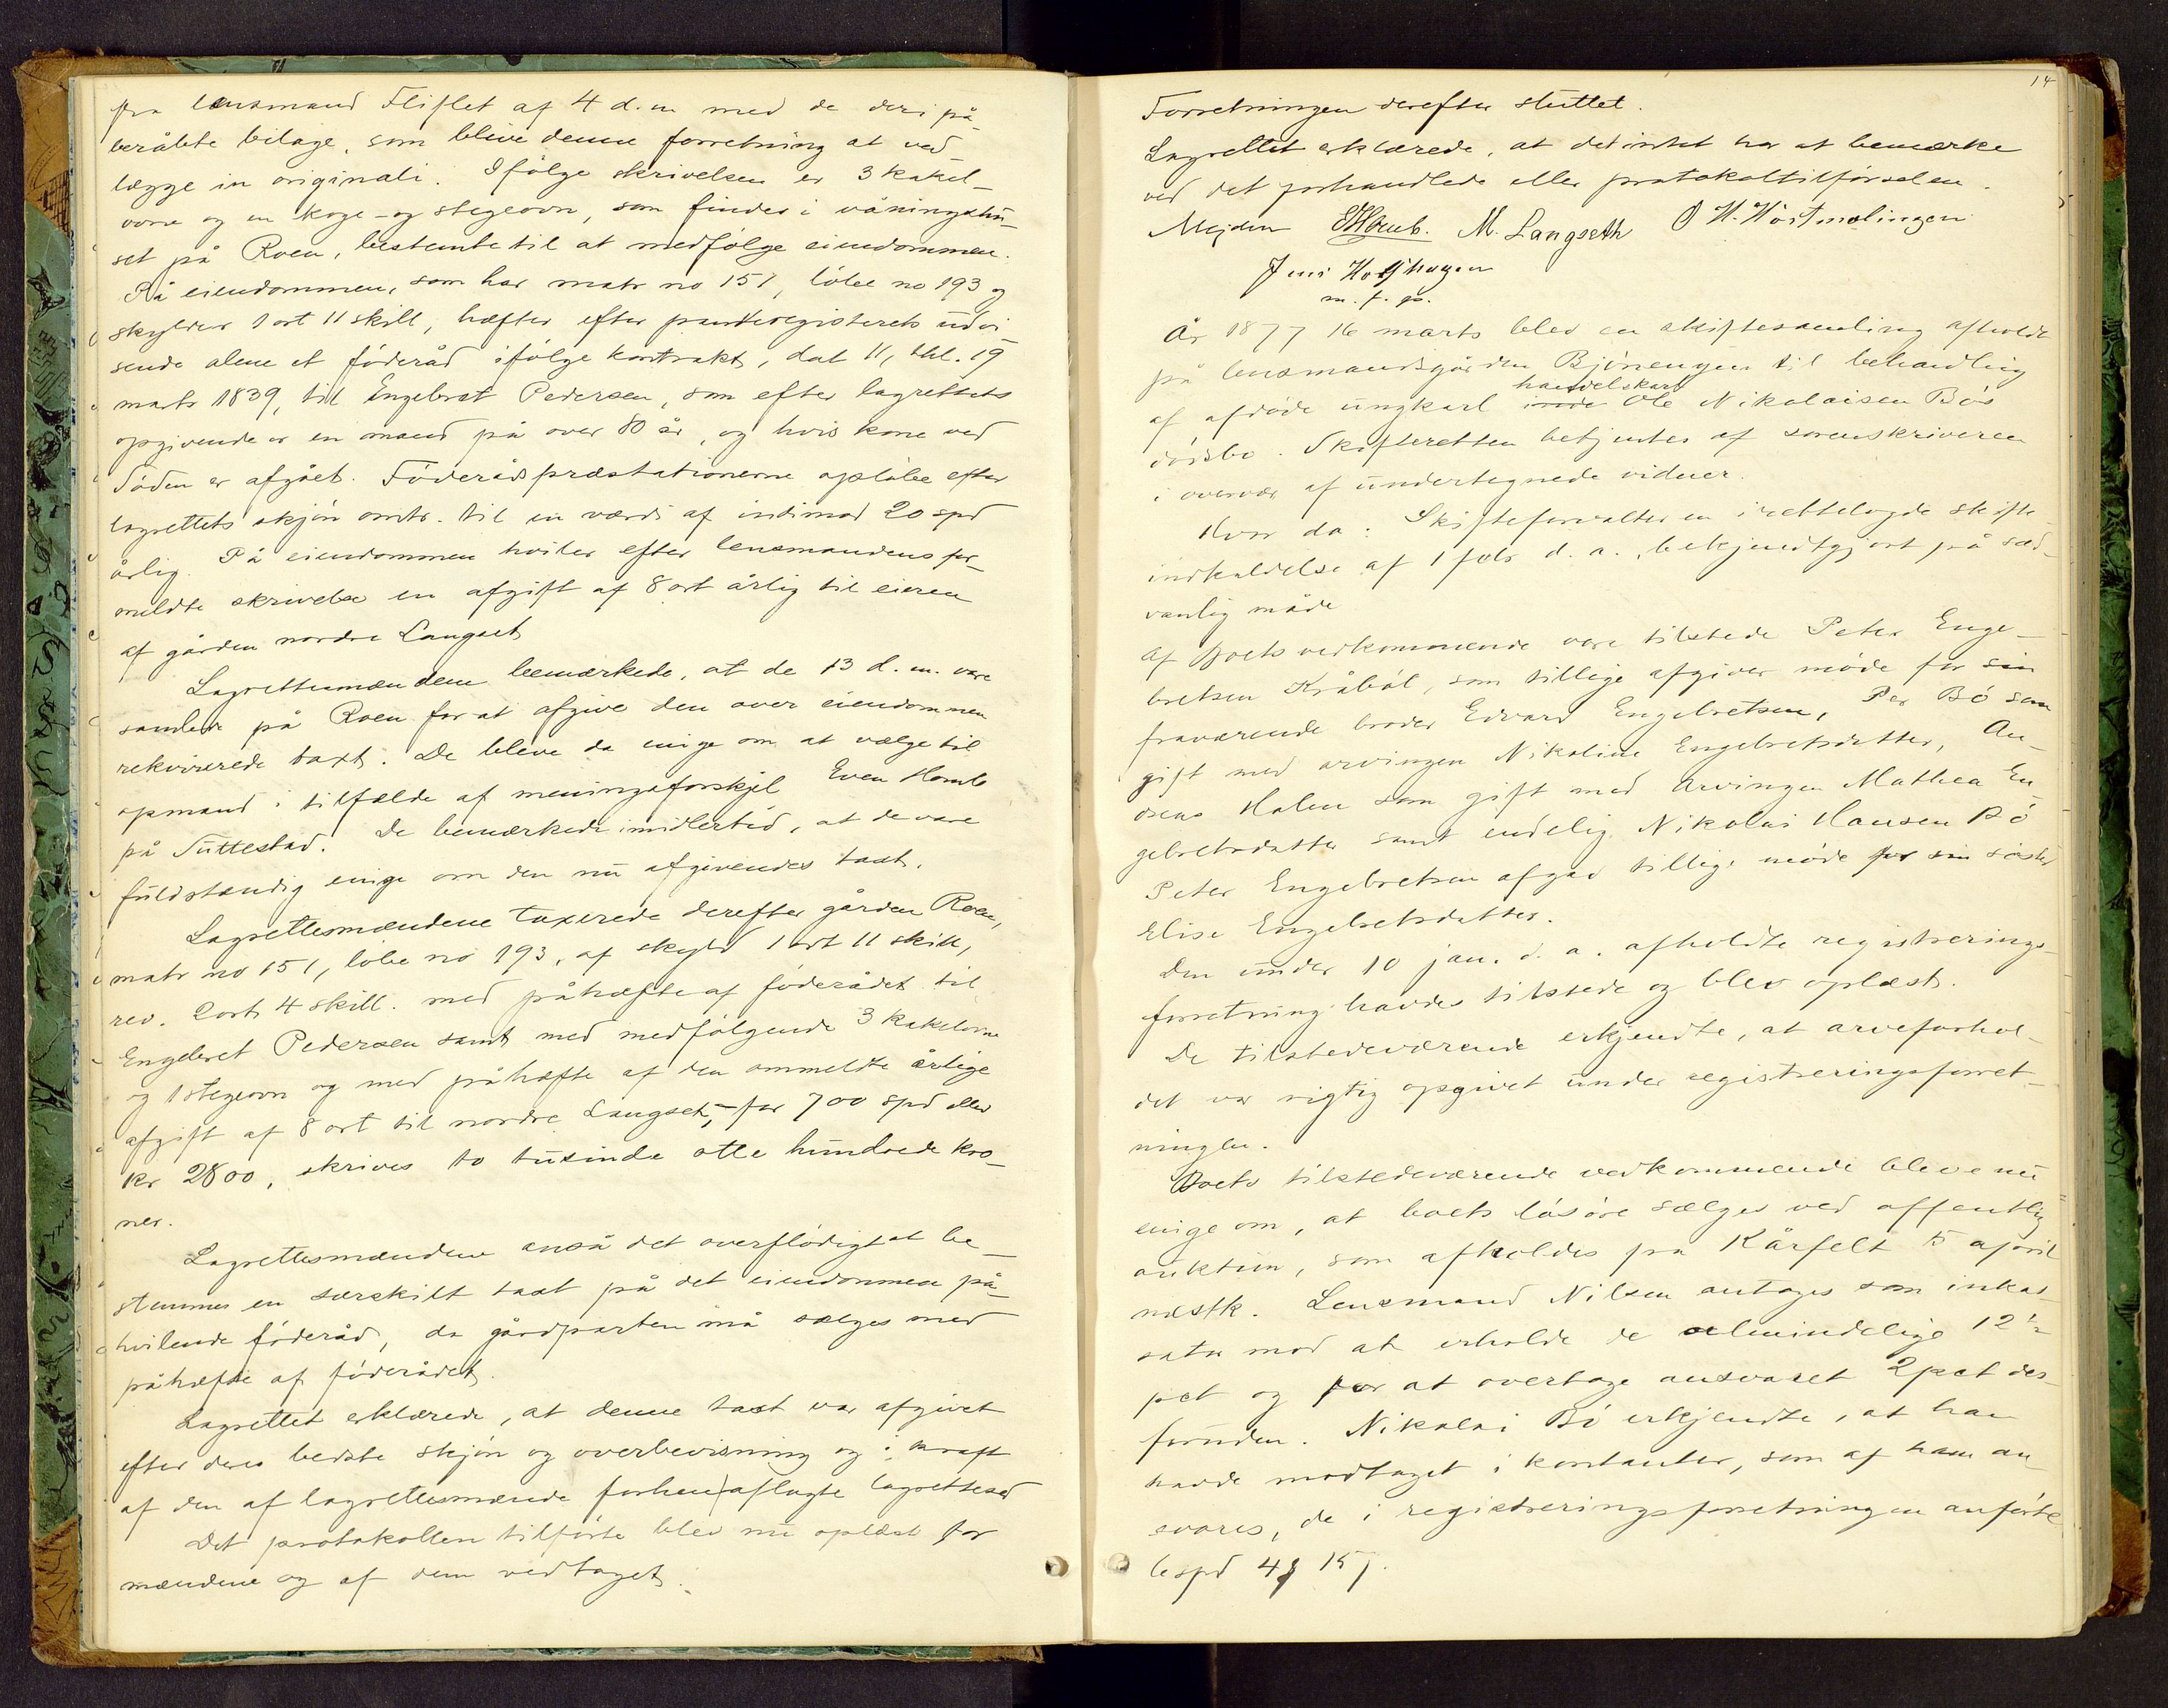 fra lensmand Fliflet af 4 d. m med de deri på-
beråbte bilage, som bleve denne forretning at ved
lægge in originali. Ifölge skrivelsen er 3 kakel-
ovne og en koge- og stegeovn, som findes i våningshu-
set på Roen, bestemte til at medfölge eiendommen.
På eiendommen, som har matr no 151, löbe no 193 og
skylder 1 ort 11 skill, hæfter efter panteregisterets udvi
sende alene et föderåd ifölge kontrakt, dat 11, thl. 19
marts 1839, til Engebret Pedersen, som efter lagrettets
opgivende er en mand på over 80 år, og hvis kone ved
döden er afgået. Föderådspræstationerne oplöbe efter
lagrettets skjön omtr. til en værdi af indimod 20 spd
årlig. På eiendommen hviler efter lensmandens for-
meldte skrivelse en afgift af 8 ort årlig til eieren
af gården nordre Langset
Lagrettesmændene bemærkede, at de 13 d. m. vare
samlede på Roen for at afgive den over eiendommen
rekvirerede taxt. De bleve da enige om at vælge til
opmand i tilfælde af meningsforskjel Even Homb
på Tuttestad. De bemærkede imidlertid, at de vare
fuldstændig enige om den nu afgivendes taxt.
Lagrettesmændene taxerede derefter gården Roen,
matr no 151, löbe no 193, af skyld 1 ort 11 skill,
rev. 2 ort 4 skill. med påhæfte af föderådet til
Engebret Pedersen samt med medfölgende 3 kakelovne
og 1 stegeovn og med påhæfte af den ommeldte årlige
afgift af 8 ort til nordre Langset, - for 700 spd eller
kr 2800, skrives to tusinde otte hundrede kro-
ner.
Lagrettesmændene anså det overflödigt at be-
stemmes en særskilt taxt på det eiendommen på-
hvilende föderåd, da gårdparten må sælges med
påhæfte af föderådet.
Lagrettet erklærede, at denne taxt var afgivet
efter deres bedste skjön og overbevisning og i kraft
af den af lagrettesmænde forhen aflagte lagrettesed
Det protokollen tilförte blev nu oplæst for
mændene og af dem vedtaget.
14
Forretningen derefter sluttet.
Lagrettet erklærede, at det intet har at bemærke
ved det forhandlede eller protokoltilförselen.
Mejdell EHomb. M. Langseth O H. Hörtmolingen
Jens Hofshagen
m. f. p.
År 1877 16 marts blev en skiftesamling afholdt
på lensmandsgården Björnengen til behandling
handelskarl
af afdöde ungkarl Ole Nikolaisen Bös
dödsbo. Skifteretten betjentes af sorenskriveren
i overvær af undertegnede vidner.
Hvor da: Skifteforvalteren irettelagde skifte
indkaldelse af 1 febr d. a., bekjendtgjort på sæd-
vanlig måde
Af Boets vedkommende vare tilstede Peter Enge-
bretsen Kråböl, som tillige afgiver möde for sin
fraværende broder Edvard Engebretsen, Per Bö som
gift med arvingen Nikoline Engebretsdatter, An-
dreas Holen som gift med Arvingen Mathea En-
gebretsdatter samt endelig Nikolai Hansen Bö
Peter Engebretsen afgav tillige möde for sin söster
Elise Engebretsdatter.
Den under 10 jan. d. a. afholdte registrerings-
forretning havdes tilstede og blev oplæst.
De tilstedeværende erkjendte, at arveforhol-
det var rigtig opgivet under registreringsforret-
ningen.
Boets tilstedeværende vedkommende bleve nu
enige om, at boets lösöre sælges ved offentlig
auktion, som afholdes på Kårfelt 5 april
næstk. Lensmand Nilsen antages som inkas-
sator mod at erholde de almindelige 12½
pct og for at overtage ansvaret 2 pct des-
foruden. Nikolai Bö erkjendte, at han
havde modtaget i kontanter, som af ham an-
svares, de i registreringsforretningen anförte
6 spd 4 15